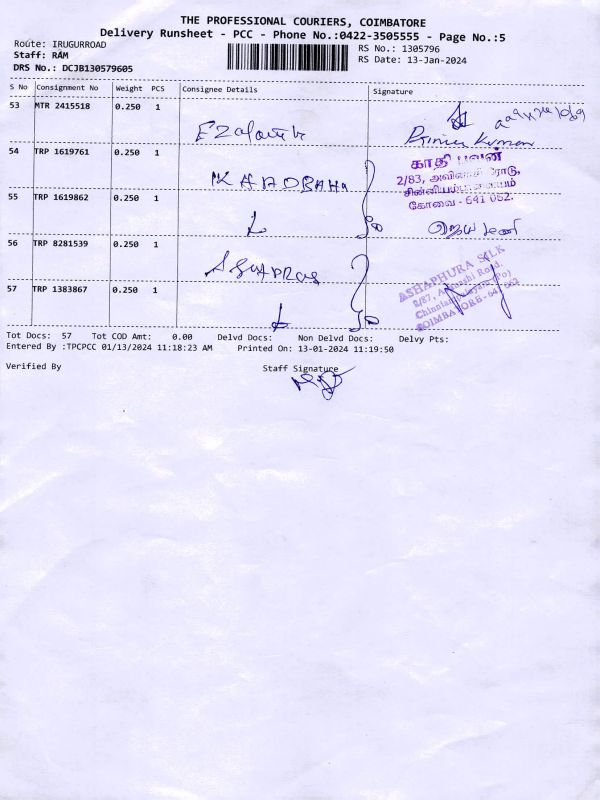 THE PROFESSIONAL COURIERS, COIMBATORE
Delivery Runsheet - PCC - Phone No.:0422-3505555 - Page No.:5
Route: IRUGURROAD
RS No.: 1305796
Staff: RAM
RS Date: 13-Jan-2024
DRS No.: DCJB130579605
S No Consignment No Weight PCS Consignee Details Signature
53 MTR 2415518 0.250 1
54 TRP 1619761 0.250 1
காதி பவன்
2/83,
KANDBAHN
கோவை - 641 062.
55 TRP 1619862 0.250 1
56 TRP 8281539 0.250 1
ASHAPHURA SILK
2/87, Avinashi Road,
57 TRP 1383867 0.250 1
COIMBATORE - 641 062
Tot Docs: 57 Tot COD Amt: 0.00 Delvd Docs: Non Delvd Docs: Delvy Pts:
Entered By :TPCPCC 01/13/2024 11:18:23 AM Printed On: 13-01-2024 11:19:50
Verified By Staff Signature